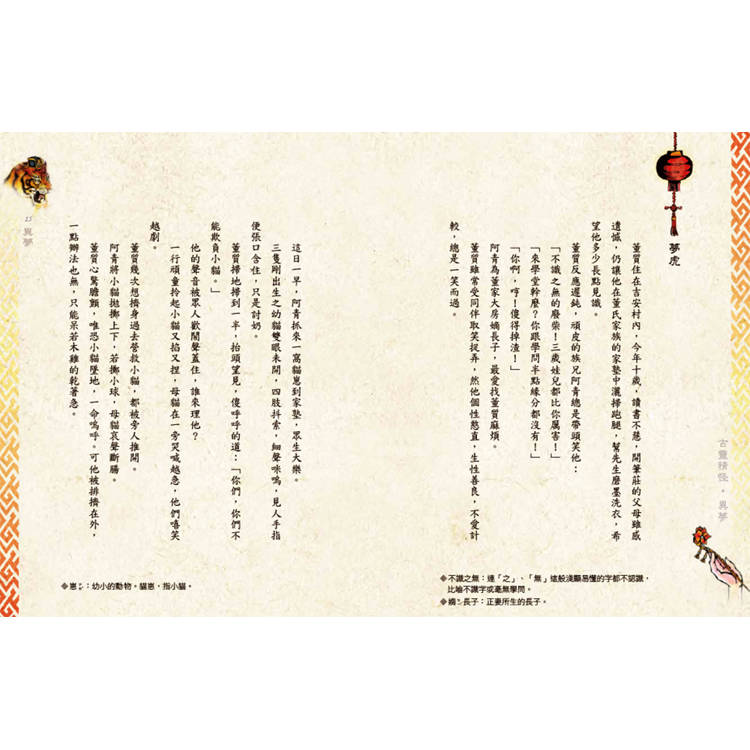 夢虎
董質住在吉安村內，今年十歲，讀書不慧，開筆莊的父母雖感
遺憾，仍讓他在董氏家族的家塾中灑掃跑腿，幫先生磨墨洗衣，希
望他多少長點見識。
董質反應遲鈍，頑皮的族兄阿青總是帶頭笑他：
「不識之無的廢柴！三歲娃兒都比你厲害！」
「來學堂幹麼？你跟學問半點緣分都沒有！」
「你啊，哼！傻得掉渣！」
阿青為董家大房嫡長子，最愛找董質麻煩。
董質雖常受同伴取笑捉弄，然他個性憨直，生性善良，不愛計
較，總是一笑而過。
古靈精怪・異夢
◈不識之無：連「之」、「無」這般淺顯易懂的字都不認識，
比喻不識字或毫無學問。
◈嫡長子：正妻所生的長子。
這日一早，阿青抓來一窩貓崽到家塾，眾生大樂。
三隻剛出生之幼貓雙眼未開，四肢抖索，細聲咪嗚，見人手指
便張口含住，只是討奶。
董質掃地掃到一半，抬頭望見，傻呼呼的道：「你們，你們不
能欺負小貓。」
他的聲音被眾人歡鬧聲蓋住，誰來理他？
一行頑童拎起小貓又掐又捏，母貓在一旁哭喊越急，他們嘻笑
越劇。
董質幾次想擠身過去營救小貓，都被旁人推開。
阿青將小貓拋擲上下，若擲小球，母貓哀聲斷腸。
董質心驚膽顫，唯恐小貓墜地，一命嗚呼。可他被排擠在外，
一點辦法也無，只能呆若木雞的乾著急。
異夢
◈崽：幼小的動物。貓崽，指小貓。